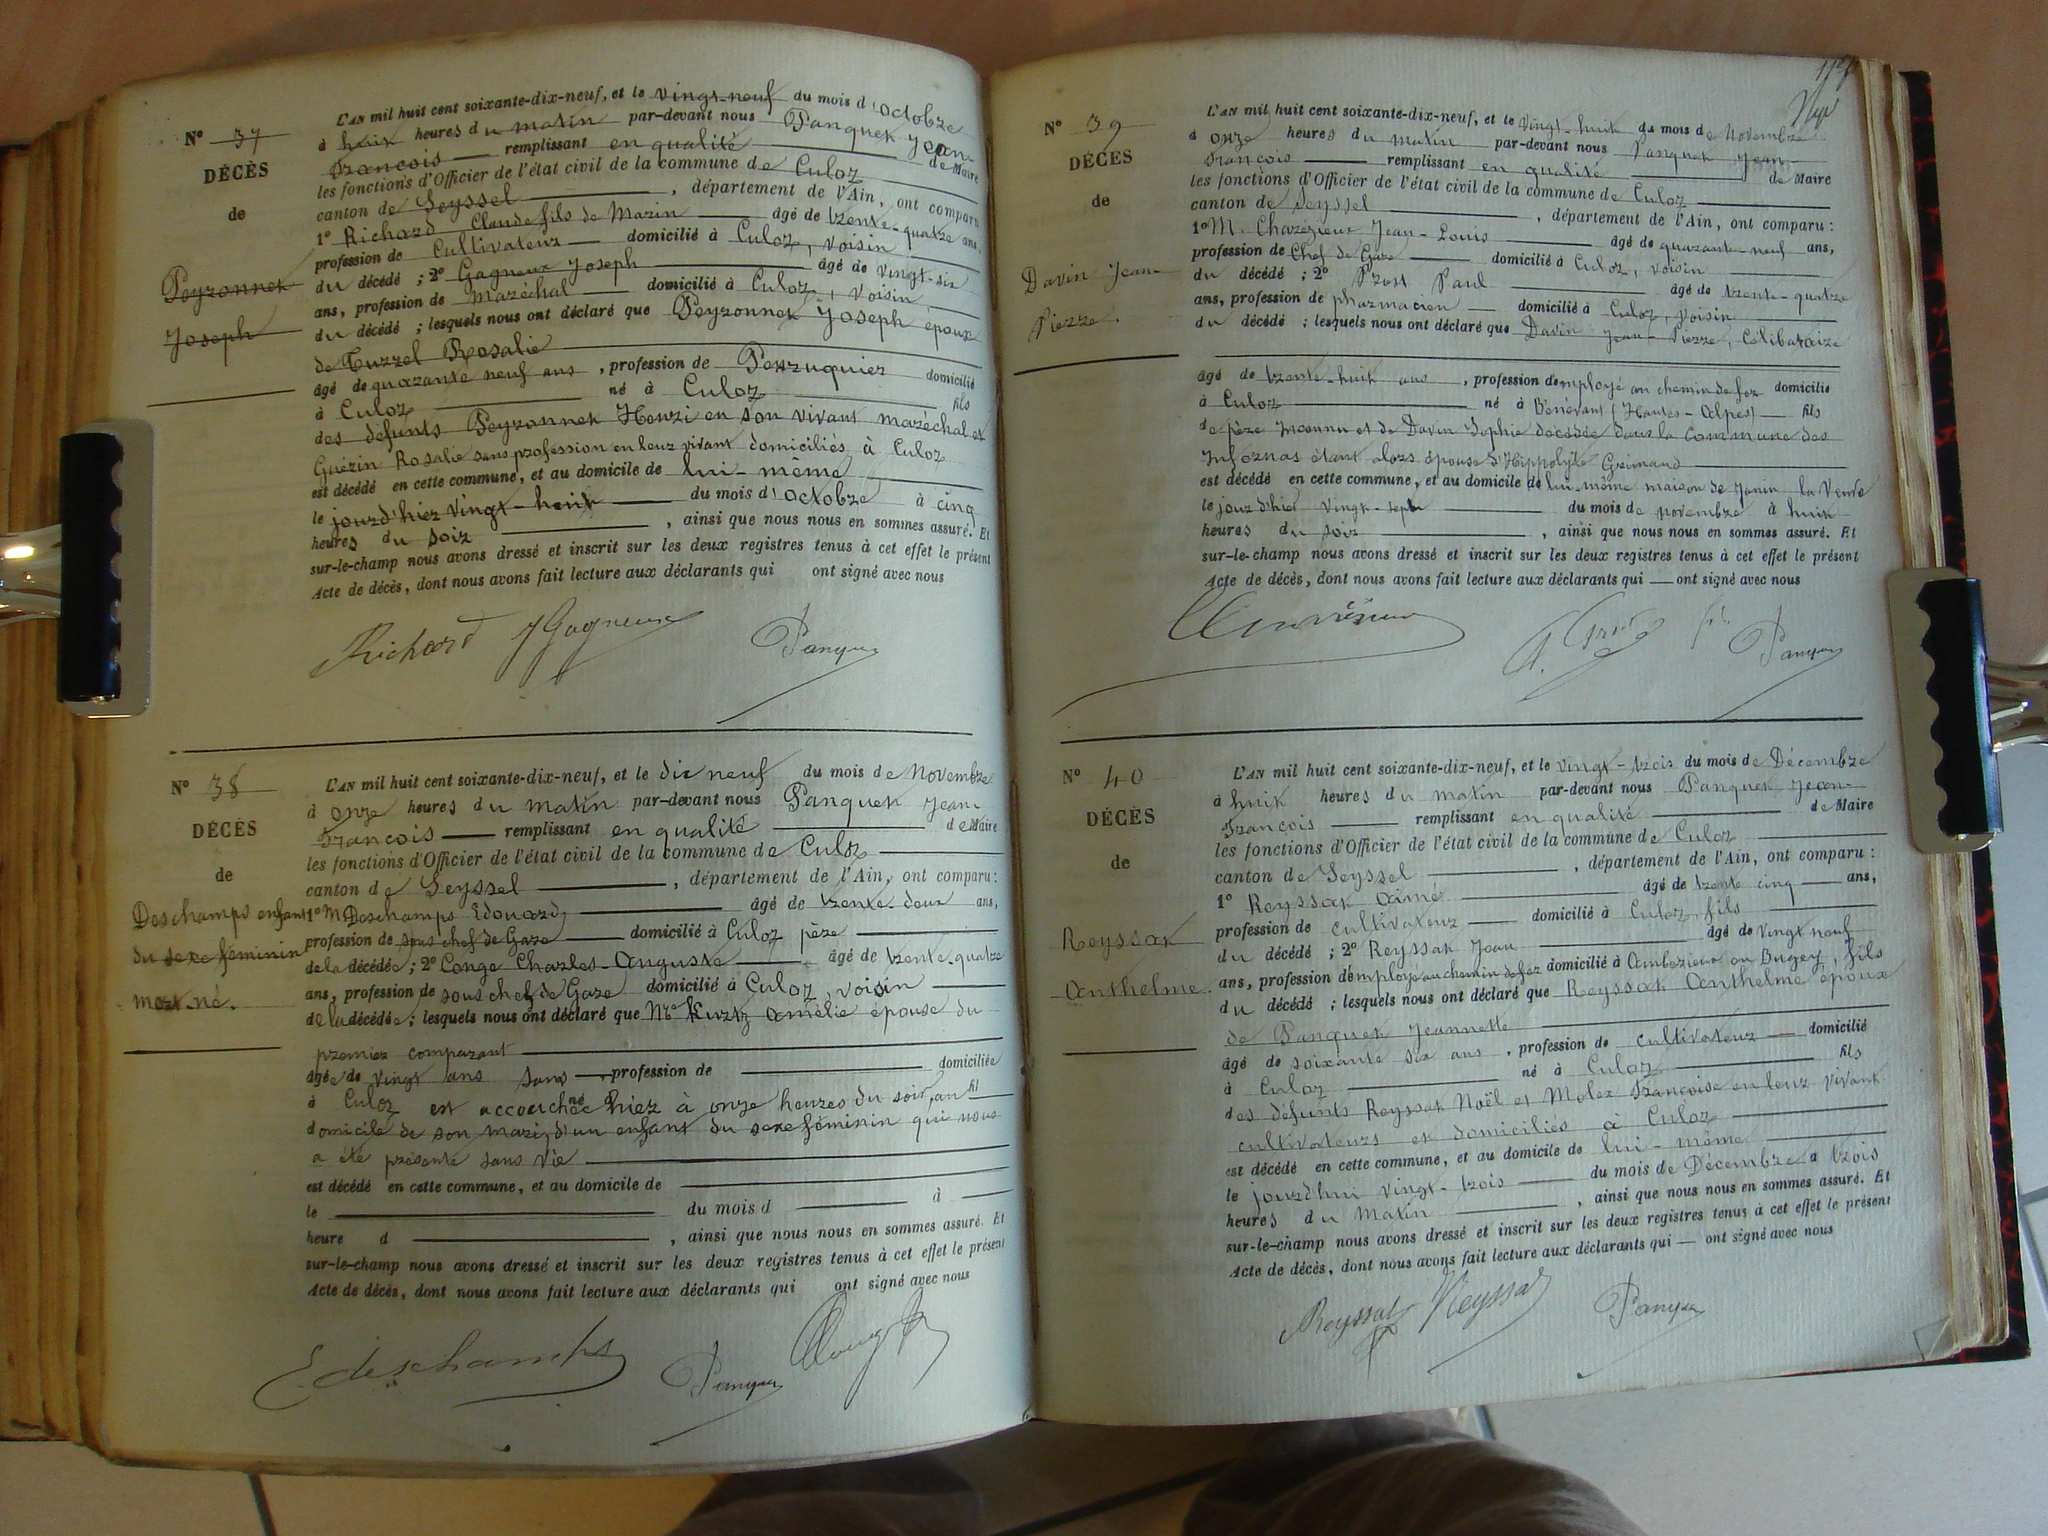 N° 37
DÉCÈS
de
Peyronnet
Joseph
L'AN mil huit cent soixante-dix-neuf, et le vingt-neuf du mois d'octobre
à huit heures du matin par-devant nous Panquet Jean-
François remplissant en qualité de Maire
les fonctions d'Officier de l'état civil de la commune de Culoz
canton de Seyssel, département de l'Ain, ont comparu
1° Richard Claude fils de Marin âgé de trente-quatre ans,
profession de Cultivateur domicilié à Culoz, voisin
du décédé ; 2° Gagneux Joseph âgé de vingt-six
ans, profession de Maréchal domicilié à Culoz, voisin
du décédé ; lesquels nous ont déclaré que Peyronnet Joseph époux
de Tuzzel Rosalie
âgé de quarante neuf ans, profession de Perruquier domicilié
à Culoz né à Culoz fils
des défunts Peyronnet Henri en son vivant maréchal et
Guérin Rosalie sans profession en leur vivant domiciliés à Culoz
est décédé en cette commune, et au domicile de lui-même
le jourd'hier vingt-huit du mois d'octobre à cinq
heures du soir, ainsi que nous nous en sommes assuré. Et
sur-le-champ nous avons dressé et inscrit sur les deux registres tenus à cet effet le présent
Acte de décès, dont nous avons fait lecture aux déclarants qui ont signé avec nous
Richard JGagneux Panquet
N° 38
DÉCÈS
de
Deschamps enfant
du sexe féminin
mort-né.
L'AN mil huit cent soixante-dix-neuf, et le dix neuf du mois de Novembre
à onze heures du matin par-devant nous Panquet Jean-
François remplissant en qualité de Maire
les fonctions d'Officier de l'état civil de la commune de Culoz
canton de Seyssel, département de l'Ain, ont comparu :
1° M. Deschamps Edouard âgé de trente-deux ans,
profession de sous chef de Gare domicilié à Culoz père
de la décédée ; 2° Conge Charles-Auguste âgé de trente-quatre
ans, profession de sous chef de Gare domicilié à Culoz, voisin
de la décédée ; lesquels nous ont déclaré que Kurtz Amélie épouse du
premier comparant
âgée de vingt ans sans profession de domiciliée
à Culoz est accouchée hier à onze heures du soir, au
domicile de son mari, d'un enfant du sexe féminin qui nous
a été présenté sans vie
est décédé en cette commune, et au domicile de
le du mois d à
heure d, ainsi que nous nous en sommes assuré. Et
sur-le-champ nous avons dressé et inscrit sur les deux registres tenus à cet effet le présent
Acte de décès, dont nous avons fait lecture aux déclarants qui ont signé avec nous
E. deschamps Panquet
N° 39
DÉCÈS
de
Davin Jean-
Pierre.
L'AN mil huit cent soixante-dix-neuf, et le vingt-huit du mois de Novembre
à onze heures du matin par-devant nous Panquet Jean-
François remplissant en qualité de Maire
les fonctions d'Officier de l'état civil de la commune de Culoz
canton de Seyssel, département de l'Ain, ont comparu :
1° M. Charézieux Jean-Louis âgé de quarante-neuf ans,
profession de Chef de Gare domicilié à Culoz, voisin
du décédé ; 2° Prost Paul âgé de trente-quatre
ans, profession de pharmacien domicilié à Culoz, voisin
du décédé ; lesquels nous ont déclaré que Davin Jean-Pierre, Célibataire
âgé de trente-huit ans, profession d'employé au chemin de fer domicilié
à Culoz né à Bénévent (Hautes-Alpes) fils
de père inconnu et de Davin Sophie décédée dans la commune des
Infornas étant alors épouse d'Hippolyte Grimaud
est décédé en cette commune, et au domicile de lui-même maison de Janin la Veuve
le jourd'hier vingt-sept du mois de novembre à huit
heures du soir, ainsi que nous nous en sommes assuré. Et
sur-le-champ nous avons dressé et inscrit sur les deux registres tenus à cet effet le présent
Acte de décès, dont nous avons fait lecture aux déclarants qui ont signé avec nous
Panquet
N° 40
DÉCÈS
de
Reyssat
Anthelme.
L'AN mil huit cent soixante-dix-neuf, et le vingt-trois du mois de Décembre
à huit heures du matin par-devant nous Panquet Jean-
François remplissant en qualité de Maire
les fonctions d'Officier de l'état civil de la commune de Culoz
canton de Seyssel, département de l'Ain, ont comparu :
1° Reyssat Aimé âgé de trente cinq ans,
profession de cultivateur domicilié à Culoz, fils
du décédé ; 2° Reyssat Jean âgé de vingt neuf
ans, profession d'employé au chemin de fer domicilié à Ambérieux en Bugey, fils
du décédé ; lesquels nous ont déclaré que Reyssat Anthelme époux
de Panquet Jeannette
âgé de soixante six ans, profession de cultivateur domicilié
à Culoz né à Culoz fils
des défunts Reyssat Noël et Molex Françoise en leur vivant
cultivateurs et domiciliés à Culoz
est décédé en cette commune, et au domicile de lui-même
le jourd'hui vingt-trois du mois de Décembre à trois
heures du Matin, ainsi que nous nous en sommes assuré. Et
sur-le-champ nous avons dressé et inscrit sur les deux registres tenus à cet effet le présent
Acte de décès, dont nous avons fait lecture aux déclarants qui ont signé avec nous
Reyssat Reyssat Panquet